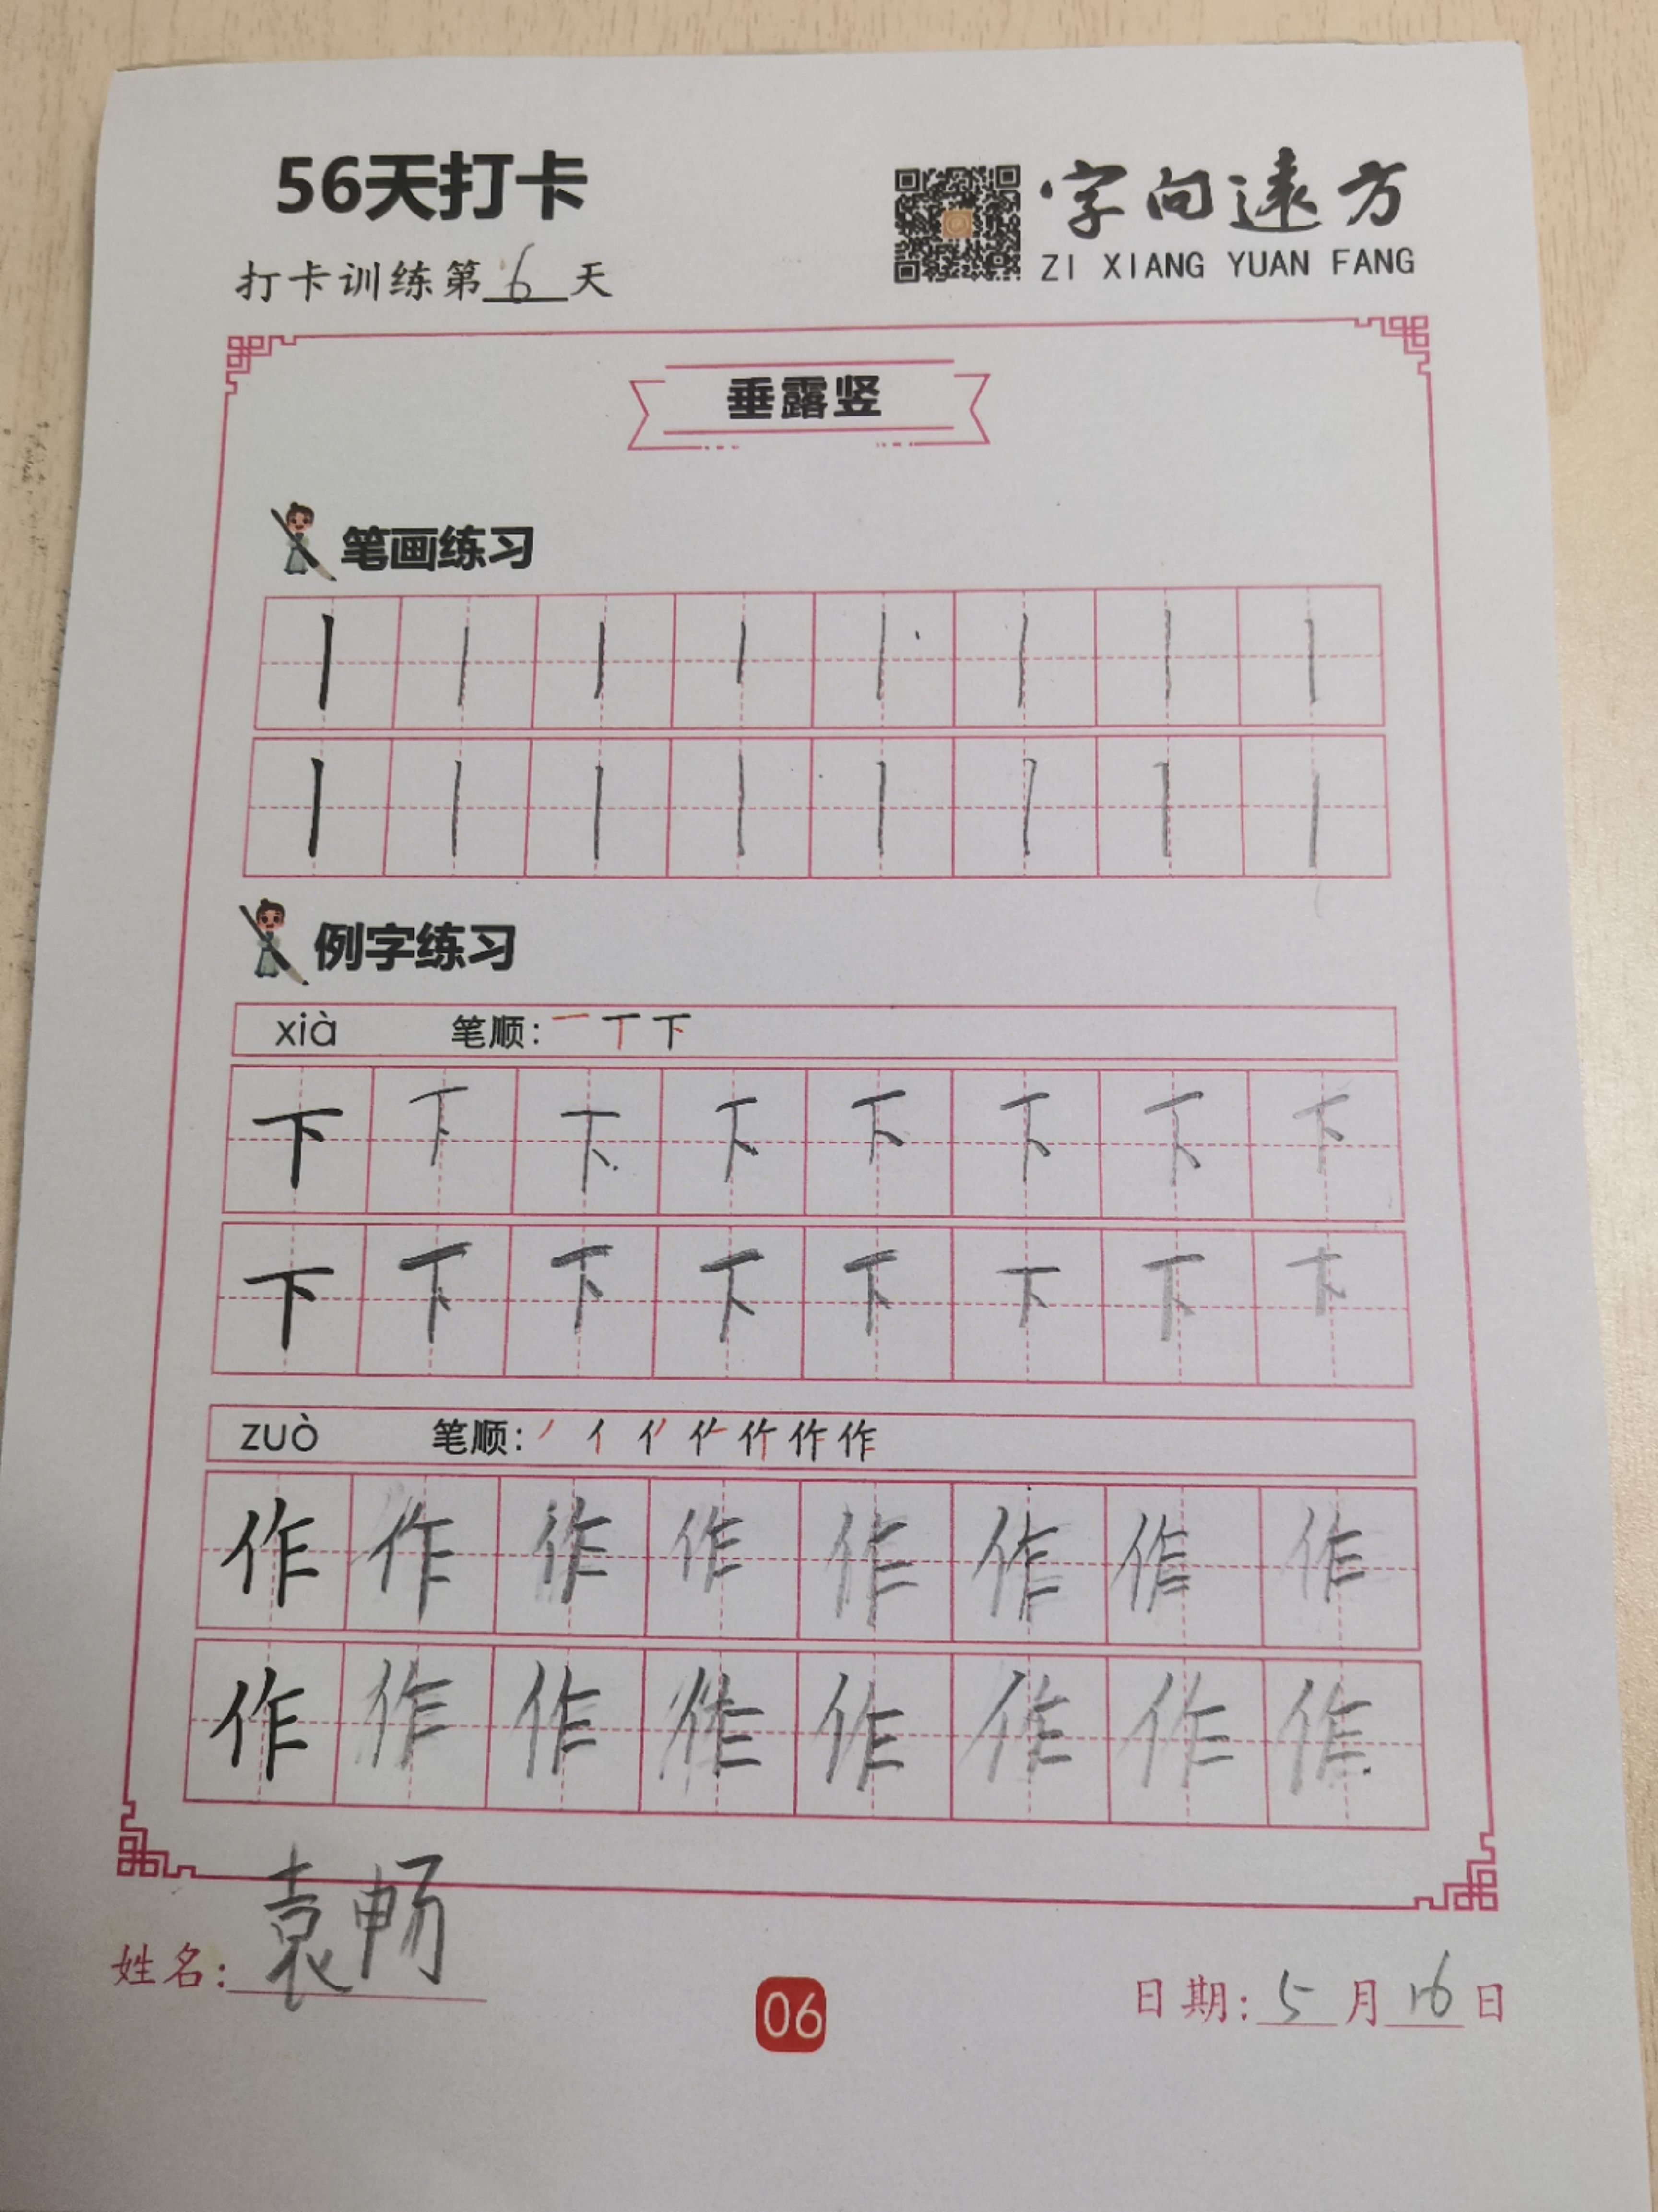 56天打卡
字向遠方
ZI XIANG YUAN FANG
打卡训练第6天
垂露竖
笔画练习
丨 丨 丨 丨 丨 丨 丨 丨
丨 丨 丨 丨 丨 丨 丨 丨
例字练习
xià 笔顺: 一 丅 下
下 下 下 下 下 下 下 下
下 下 下 下 下 下 下 下
zuò 笔顺: 作
作 作 作 作 作 作 作 作
作 作 作 作 作 作 作 作
姓名: 袁畅
06
日期: 5月16日